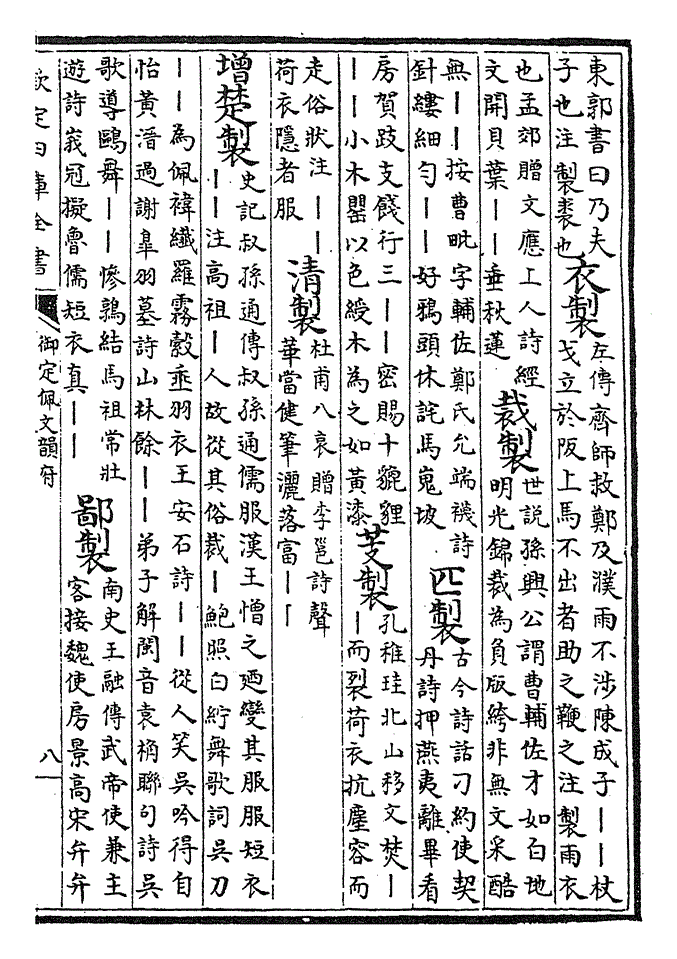 東郭書曰乃夫
子也注製裘也
衣製
左傳齊師救鄭及濮雨不涉陳成子——杖
戈立於阪上馬不出者助之鞭之注製雨衣
也孟郊贈文應上人詩經
文開貝葉——垂秋蓮
裁製
世説孫興公謂曹輔佐才如白地
明光錦裁為負版絝非無文采酷
無——按曹毗字輔佐鄭氏允端襪詩
針縷細勻——好鴉頭休詫馬嵬坡
匹製
古今詩話刁約使契
丹詩押燕夷離畢看
房賀跋支餞行三——密賜十貔貍
——小木罌以色綬木為之如黄漆
芰製
孔稚珪北山移文焚—
—而裂荷衣抗塵容而
走俗狀注——
荷衣隱者服
清製
杜甫八哀贈李邕詩聲
華當健筆灑落富——
增楚製
史記叔孫通傳叔孫通儒服漢王憎之迺變其服服短衣
——注高祖—人故從其俗裁—鮑照白紵舞歌詞吳刀
——為佩褘纖羅霧縠乖羽衣王安石詩——從人笑吳吟得自
怡黄溍過謝臯羽墓詩山林餘——弟子解閩音袁桷聯句詩吳
歌導鷗舞——慘鶉結馬祖常壯
遊詩峩冠擬魯儒短衣真——
鄙製
南史王融傳武帝使兼主
客接魏使房景高宋弁弁
欽定四庫全書
御定佩文韻府
八